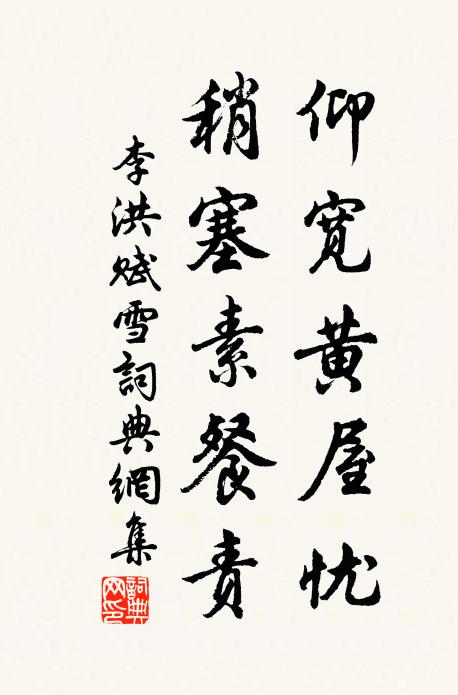 仰宽黄屋忧
稍塞素餐责
李洪赋雪詞典網集
詞典网印